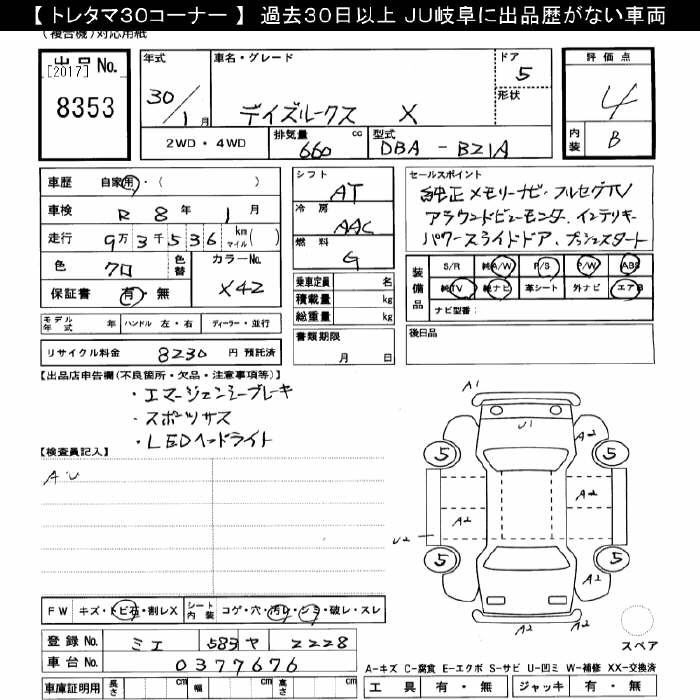 【 トレタマ30コーナー 】 過去30日以上 JU岐阜に出品歴がない車両
(複合機)対応用紙
出品 No.
[2017]
8353
年式
30/1月
車名・グレード
デイズルークス X
ドア
5
形状
2WD・4WD
排気量 cc
660
型式
DBA - B21A
評価点
4
内装
B
車歴 自家用・( )
車検 R 8年 1月
走行 9万3千536 km マイル( )
色 クロ 色替 カラーNo. X42
保証書 有・無
シフト
AT
冷房
AAC
燃料
G
乗車定員 名
積載量 kg
総重量 kg
書類期限
月 日
セールスポイント
純正メモリーナビ・フルセグTV
アラウンドビューモニター、インテリキー
パワースライドドア、プッシュスタート
装備品
S/R 純A/W P/S P/W ABS
純TV 純ナビ 革シート 外ナビ エアB
ナビ型番:
後日品
モデル年式 年 ハンドル 左・右 ディーラー・並行
リサイクル料金 8230 円 預託済
【出品店申告欄(不良箇所・欠品・注意事項等)】
・エマージェンシーブレーキ
・スポーツサス
・LEDヘッドライト
【検査員記入】
AU
A1
U1
A2
5
5
A2
A2
U2
5
5
A2
A2
A2
スペア
FW キズ・トビ石・割レX シート内装 コゲ・穴・汚レ・シミ・破レ・スレ
登録 No. ミエ 583 ヤ 2228
車台 No. 0377676
車庫証明用 長さ cm 幅 cm 高さ cm
A-キズ C-腐食 E-エクボ S-サビ U-凹ミ W-補修 XX-交換済
工具 有・無 ジャッキ 有・無